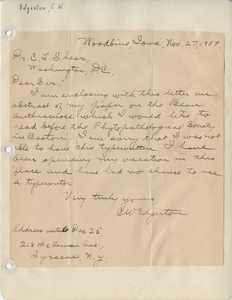 Edgerton, C. W.
Woodbine Iowa, Nov. 27, 1909
Dr. C. L. Shear,
Washington, D.C.
Dear Sir:
I am enclosing with this letter an
abstract of my paper on the Bean
anthracnose which I would like to
read before the Phytopathological Society
in Boston. I am sorry that I was not
able to have this typewritten. I have
been spending my vacation in this
place and have had no chance to use
a typewriter.
Very truly yours
C W Edgerton
Address until Dec 25
218 McLennan Ave.,
Syracuse, N. Y.